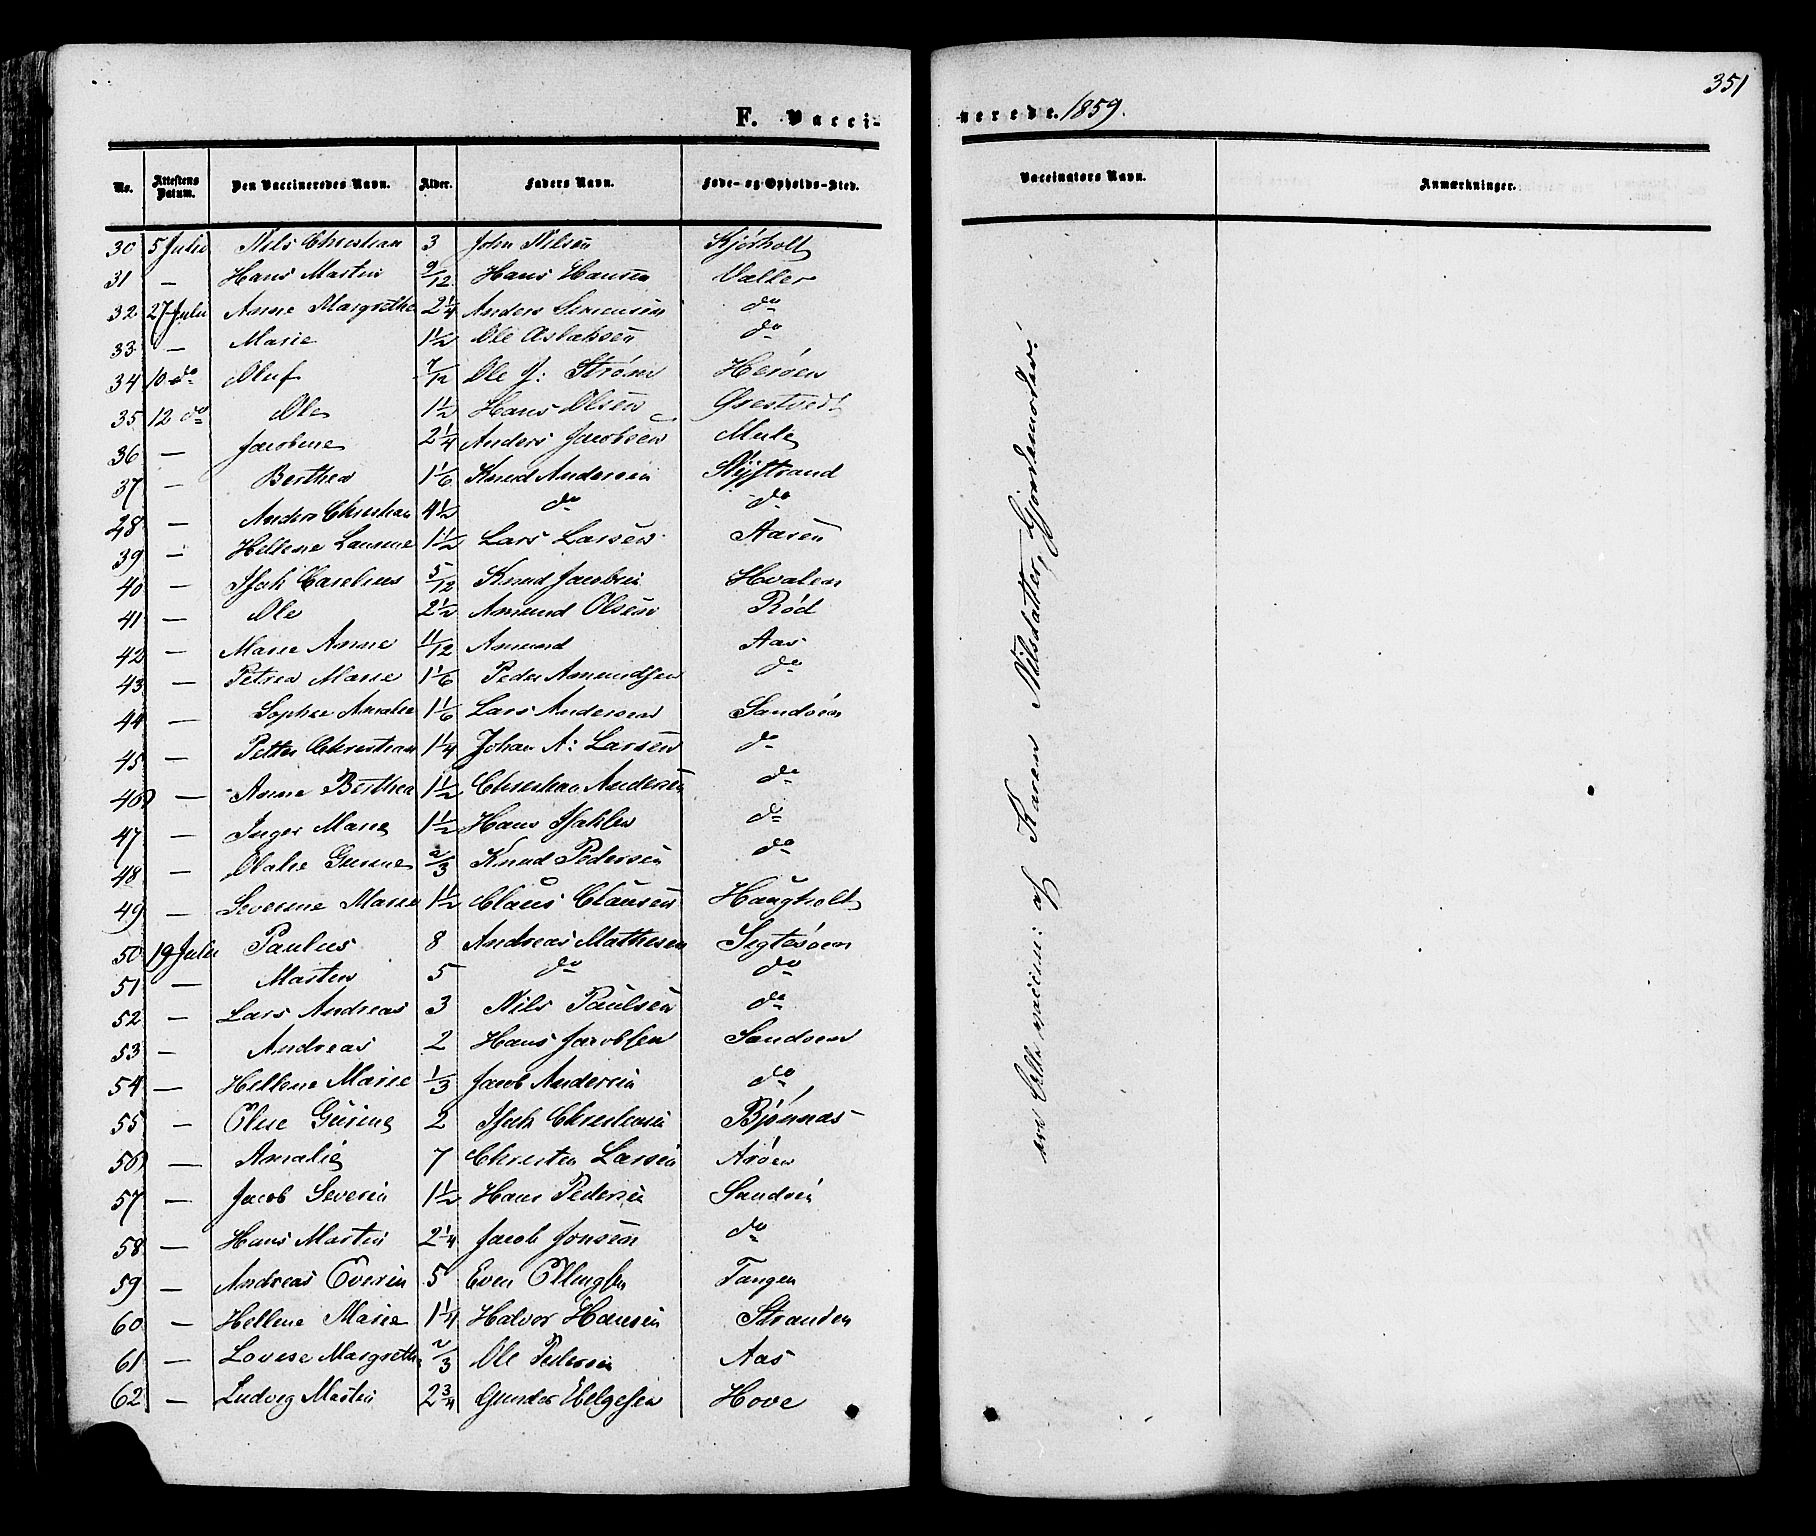 351
F. Vacci-
nerede. 1859.
No. Attestens Datum. Den Vaccineredes Navn. Alder. Faders Navn. Føde- og Opholds-Sted. Vaccinators Navn. Anmærkninger.
30 5 Julii Nils Christian 3 John Nilsen Kjørholt
31 — Hans Martin 9/12 Hans Hansen Valler
32 27 Julii Anne Margrethe 2 1/4 Anders Simensen do
33 — Marie 1 1/2 Ole Aslaksen do
34 10 do Oluf 7/12 Ole J: Strøm Herøen
35 12 do Ole 1 1/2 Hans Olsen Grestvedt
36 — Jacobine 2 1/4 Anders Jacobsen Mule
37 — Berthea 1 1/6 Knud Andersen
28 — Anders Christian 4 1/2 do do
39 — Hellene Laurine 1 1/2 Lars Larsen Aarøen
40 — Isak Carelius 5/12 Knud Jacobsen Hvalen
41 — Ole 2 1/2 Amund Olsen Rød
42 — Marie Anne 11/12 Amund Aas
43 — Petrea Marie 1 1/6 Peder Amundsen do
44 — Sophie Amalie 1 1/6 Lars Andersen Sandøen
45 — Petter Christian 1 1/4 Johan A: Larsen do
46 — Anne Berthea 1 1/2 Christian Andersen do
47 — Inger Marie 1 1/2 Hans Isaksen do
48 — Olalie Gurine 2/3 Knud Pedersen do
49 — Severine Marie 1 1/2 Claus Clausen Haugholt
50 19 Julii Paulus 8 Andreas Mathisen Sigtesøen
51 — Marten 5 do do
52 — Lars Andreas 3 Nils Paulsen do
53 — Andreas 2 Hans Jacobsen Sandøen
54 — Hellene Marie 1/3 Jacob Andersen do
55 — Elise Gurine 2 Isak Christensen Bjønnæs
56 — Amalie 7 Christen Larsen Arøen
57 — Jacob Severin 1 1/2 Hans Pedersen Sandøen
58 — Hans Martin 2 1/4 Jacob Jonsen do
59 — Andreas Everin 5 Even Ellingsen Tangen
60 — Hellene Marie 1 1/4 Halvor Hansen Stranden
61 — Lovise Margrethe 2/3 Ole Pedersen Aas
62 — Ludvig Martin 2 3/4 Gunder Helgesen Hove
ere alle vaccin: af Karen Nilsdatter, Gjordemoder.